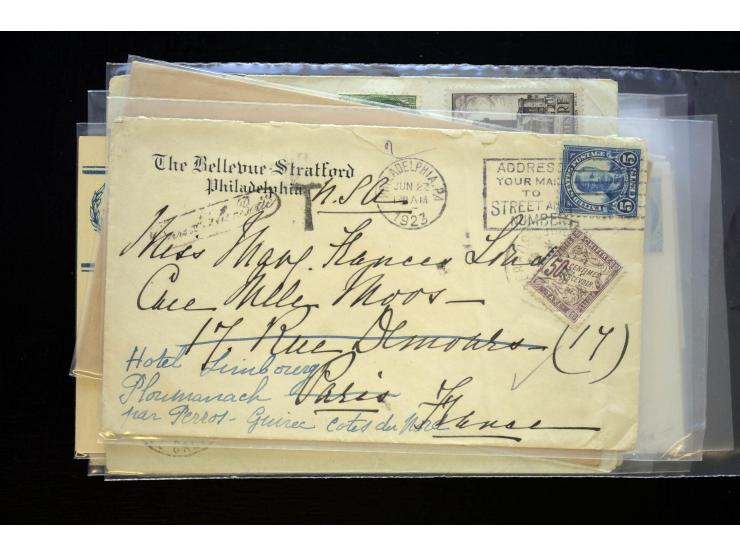 The Bellevue-Stratford
Philadelphia
U.S.A.
T
PHILADELPHIA, PA.
JUN 27
AM
1923
ADDRESS
YOUR MAIL
TO
STREET AND
NUMBER
5 5
50
CENTIMES
Miss Mary Frances
Care Mlle Moos —
17 Rue Demours — (17)
Paris
France
Hotel Limbourg
Ploumanach
par Perros-Guirec Cotes du Nord